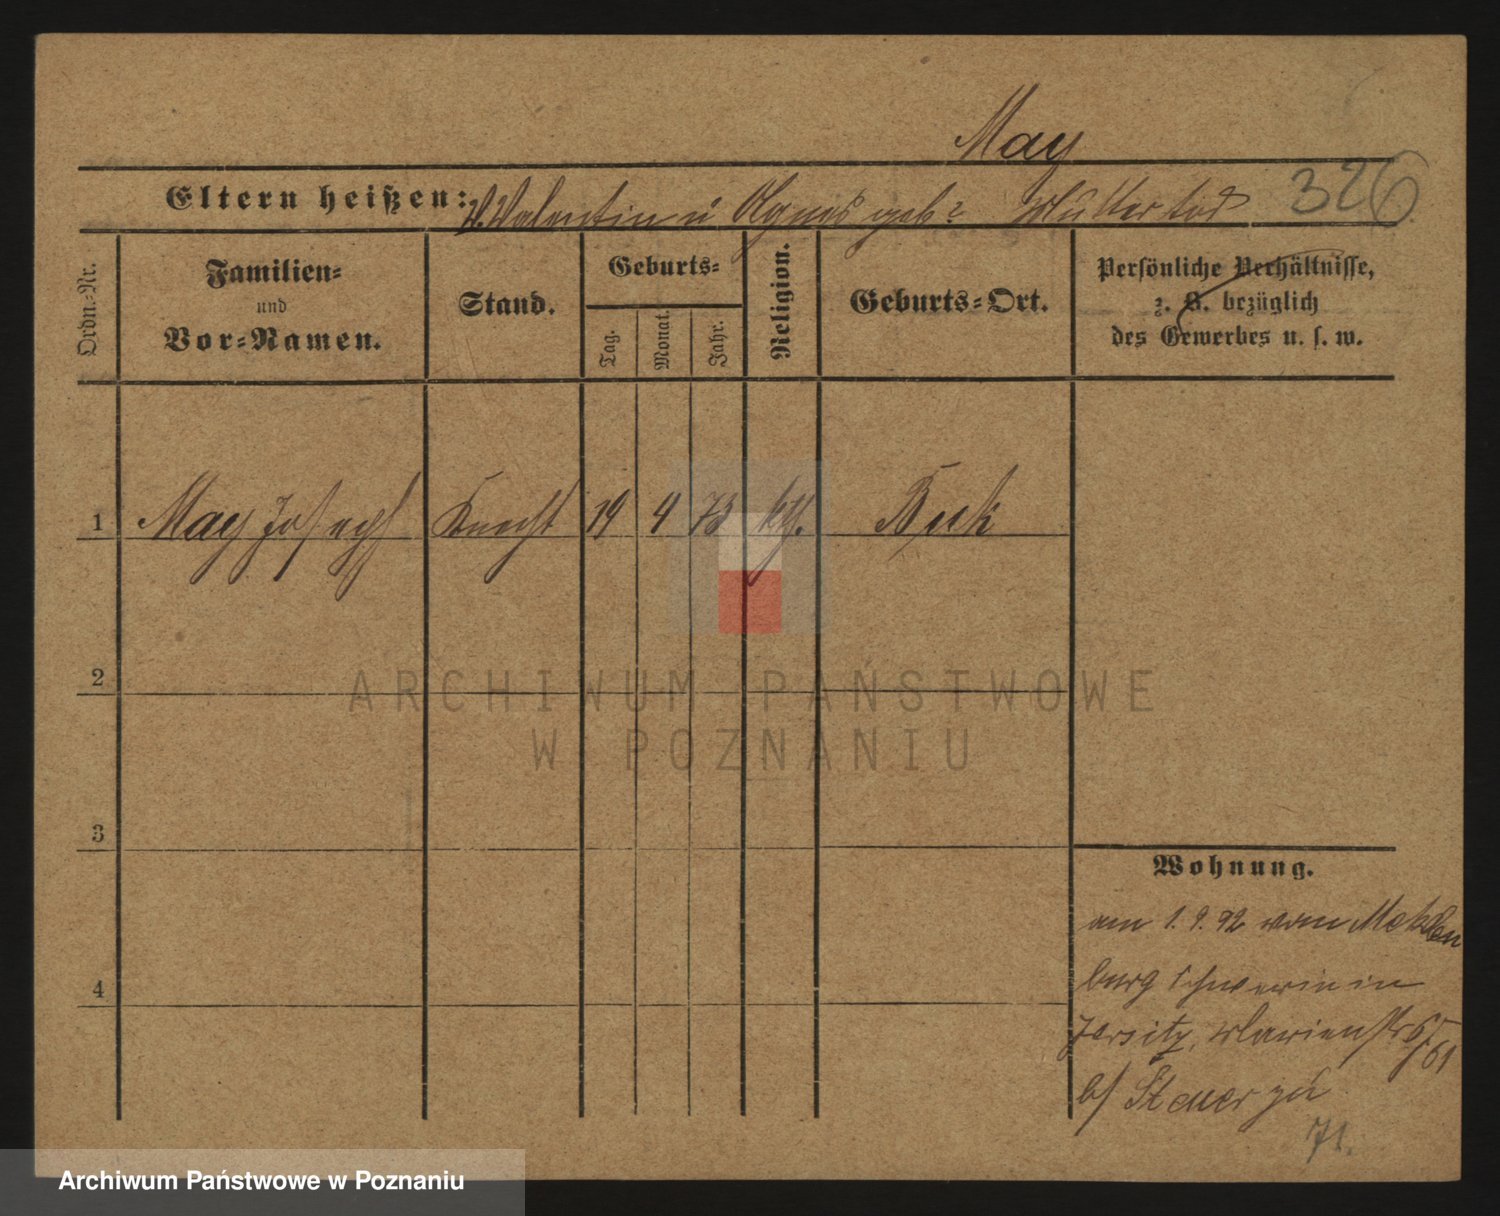 May
326
Eltern heißen: V. Valentin u Agnes geb? Mutter tod
Ordn.-Nr.
Familien-
und
Vor-Namen.
Stand.
Geburts-
Tag.
Monat.
Jahr.
Religion.
Geburts-Ort.
Persönliche Verhältnisse,
z. B. bezüglich
des Gewerbes u. s. w.
1 May Joseph Knecht 19 4 73 kth. Buk
2
3
4
ARCHIWUM PAŃSTWOWE
W POZNANIU
Wohnung.
am 1.9.92 von Meklen
burg Schwerin in
Jersitz, Marienstr
b/ Steuer zu
71.
Archiwum Państwowe w Poznaniu